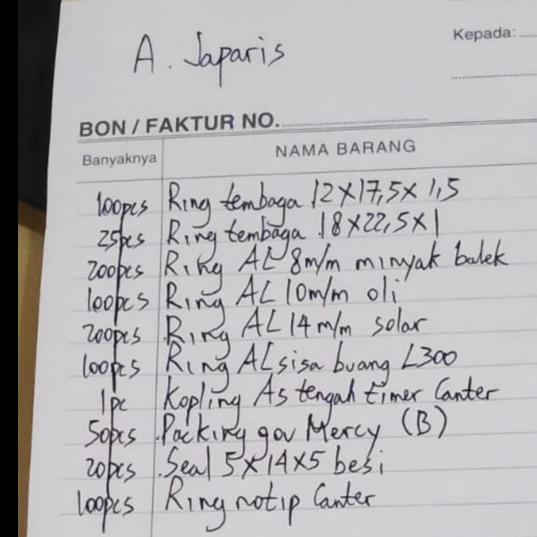 Kepada:
A. Japaris
BON / FAKTUR NO.
Banyaknya NAMA BARANG
100pcs Ring tembaga 12x17,5x1,5
25pcs Ring tembaga 18x22,5x1
200pcs Ring AL 8m/m minyak balek
100pcs Ring AL 10m/m oli
200pcs Ring AL 14m/m solar
100pcs Ring AL sisa buang L300
1pc Kopling As tengah timer Canter
50pcs Packing gov Mercy (B)
20pcs Seal 5x14x5 besi
100pcs Ring notip Canter